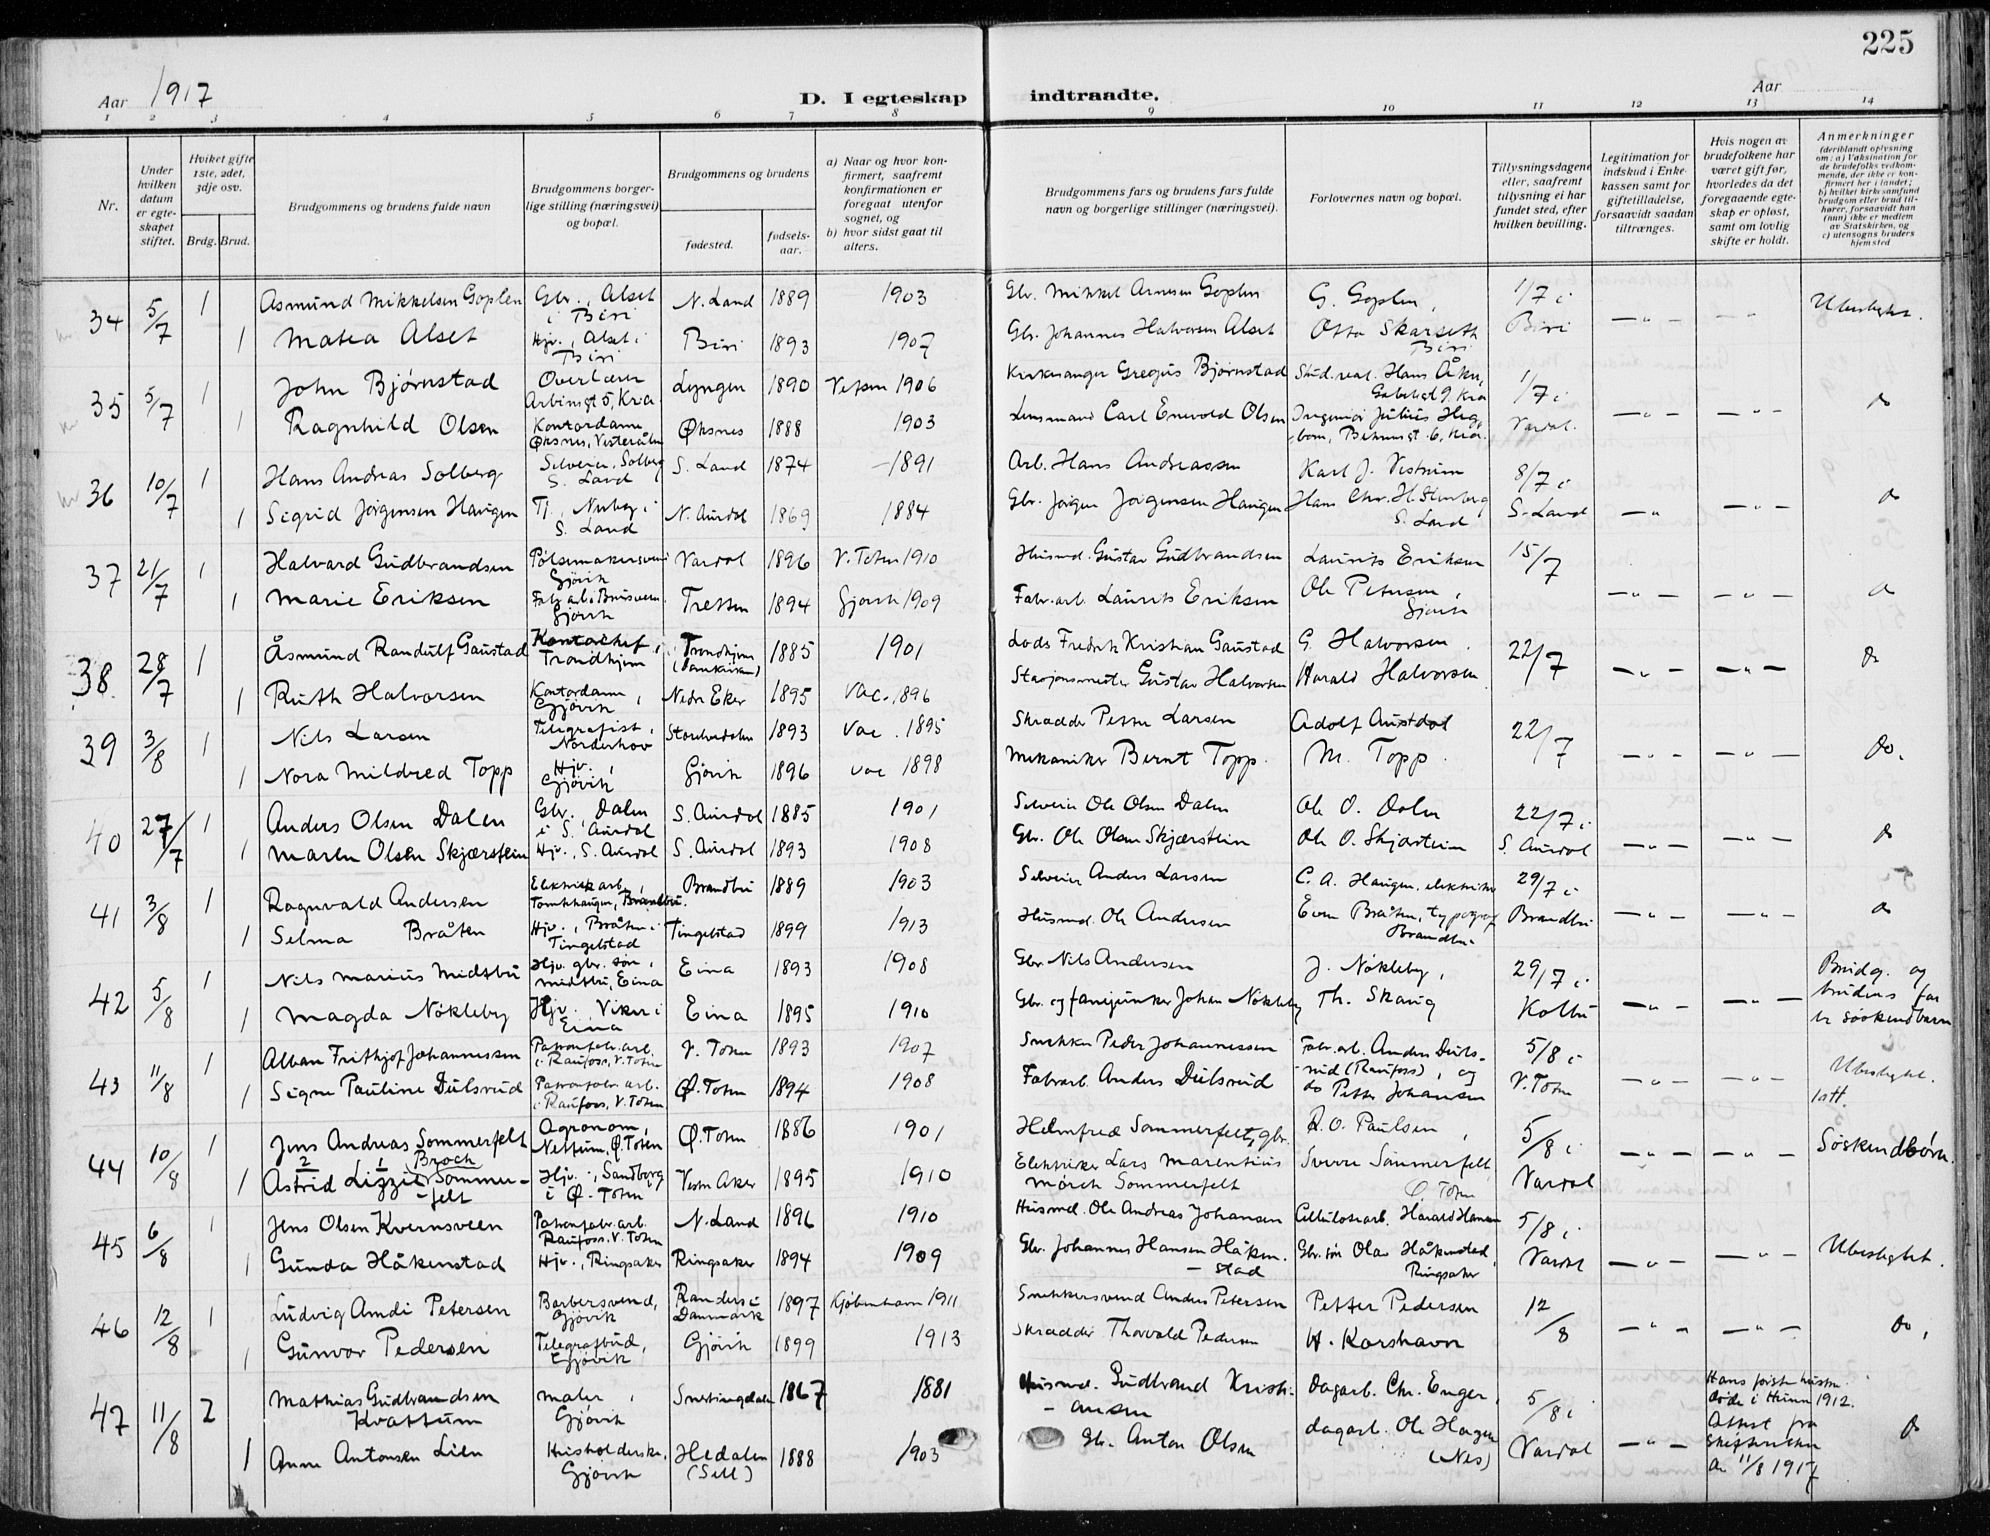 225
Aar 1917
D. I egteskap indtraadte.
Aar
1 2 3 4 5 6 7 8 9 10 11 12 13 14
Nr.
Under hvilken datum er egteskapet stiftet.
Hvilket gifte 1ste, 2det, 3dje osv.
Brdg. Brud.
Brudgommens og brudens fulde navn
Brudgommens borgerlige stilling (næringsvei) og bopæl.
Brudgommens og brudens
fødested.
fødselsaar.
a) Naar og hvor konfirmert, saafremt konfirmationen er foregaat utenfor sognet, og
b) hvor sidst gaat til alters.
Brudgommens fars og brudens fars fulde navn og borgerlige stillinger (næringsvei).
Forlovernes navn og bopæl.
Tillysningsdagene eller, saafremt tillysning ei har fundet sted, efter hvilken bevilling.
Legitimation for indskud i Enkekassen samt for giftetilladelse, forsaavidt saadan tiltrænges.
Hvis nogen av brudefolkene har været gift før, hvorledes da det foregaaende egteskap er opløst, samt om lovlig skifte er holdt.
Anmerkninger (deriblandt oplysning om: a) Vaksination for de brudefolks vedkommende, der ikke er konfirmert her i landet; b) hvilket kirkesamfund brudgom eller brud tilhører, forsaavidt han (hun) ikke er medlem av Statskirken, og c) utensogns bruders hjemsted
34 5/7 1 Asmund Mikkelsen Goplen Gbr., Alset i Biri N. Land 1889 1903 Gbr. Mikkel Arnesen Goplen G. Goplen, 1/7 i Ubeslægtet.
1 Matea Alset Hjv., Alset i Biri Biri 1893 1907 Gbr. Johannes Halvorsen Alset Otto Skarseth Biri Biri
35 5/7 1 John Bjørnstad Overlærer Arbinsgt 5, Kra. Lyngen 1890 Vefsen 1906 Kirkesanger Gregus Bjørnstad Stud. real. Hans Åker, 1/7 i do
1 Ragnhild Olsen Kontordame Øksnes, Vesterålen Øksnes 1888 1903 Lensmand Carl Enevold Olsen Ingeniør Julius Kra. Vardal.
36 10/7 1 Hans Andreas Solberg Selveier, Solberg S. Land S. Land 1874 1891 Arb. Hans Andreassen Karl J. Vestrum 8/7 i do
1 Sigrid Jørgensen Haugen Tj., i S. Land N. Aurdal 1869 1884 Gbr. Jørgen Jørgensen Haugen Hans Chr. H. S. Land S. Land
37 21/7 1 Halvard Gudbrandsen Pølsemakersvend Gjøvik Vardal 1896 V. Toten 1910 Husmd. Gustav Gudbrandsen Laurits Eriksen 15/7
1 Marie Eriksen Gjøvik Tretten 1894 Gjøvik 1909 Fabr. arb. Laurits Eriksen Ole Petersen, Gjøvik do
38 28/7 1 Åsmund Randulf Gaustad Kontorchef, Trondhjem Trondhjem 1885 1901 Lods Fredrik Kristian Gaustad G. Halvorsen 22/7 do
1 Ruth Halvorsen Kontordame, Gjøvik Nedre Eker 1895 vac. 1896 Stasjonsmester Gustav Halvorsen Harald Halvorsen
39 3/8 1 Nils Larsen Telegrafist, Norderhov Storelvedalen 1893 vac. 1895 Skrædder Petter Larsen Adolf Austdal 22/7 do.
1 Nora Mildred Topp Hjv., Gjøvik Gjøvik 1896 vac 1898 Mekaniker Bernt Topp. M. Topp.
40 27/7 1 Anders Olsen Dalen Gbr., Dalen i S. Aurdal S. Aurdal 1885 1901 Selveier Ole Olsen Dalen Ole O. Dalen 22/7 i do
1 Marta Olsen Skjærstein Hjv., S. Aurdal S. Aurdal 1893 1908 Gbr. Ole Olsen Skjærstein Ole O. Skjærstein S. Aurdal
41 3/8 1 Ragnvald Andersen Elektrisk arb., Brandbu. Brandbu 1889 1903 Selveier Anders Larsen C. A. Haugen, elektriker 29/7 i do
1 Selma Bråten Hjv., Bråten i Tingelstad Tingelstad 1899 1913 Husmd. Ole Andersen Even Bråten, typograf Brandbu Brandbu
42 5/8 1 Nils Marius Midtbø Hjv. gbr. søn, Midtbø, Eina Eina 1893 1908 Gbr Nils Andersen J. Nøkleby, 29/7 i Brudg. og brudens far er søskendbarn
1 Magda Nøkleby Hjv., Viker i Eina Eina 1895 1910 Gbr. og fanejunker Johan Nøkleby Th. Skaug Kolbu
43 11/8 1 Alban Frithjof Johannessen Patronfabr. arb. i Raufoss, V. Toten V. Toten 1893 1907 Snekker Peder Johannessen Fabr. arb. Anders Dulsrud (Raufoss), og 5/8 i Ubeslægtet.
1 Signe Pauline Dulsrud Patronfabr. arb. i Raufoss, V. Toten Ø. Toten 1894 1908 Fabr arb. Anders Dulsrud do Petter Johansen V. Toten 1 att.
44 10/8 1 Jens Andreas Sommerfelt Agronom, Ø. Toten Ø. Toten 1886 1901 Helmfred Sommerfelt, gbr. R. O. Paulsen, 5/8 i Søskendbørn.
1 Astrid Lizzie Broch Sommerfelt Hjv., Sandborg i Ø. Toten Vestre Aker 1895 1910 Elektriker Lars Marentius Mørch Sommerfelt Sverre Sommerfelt, Ø. Toten Vardal
45 6/8 1 Jens Olsen Kvernsveen Patronfabr. arb. Raufoss. V. Toten N. Land 1896 1910 Husmd. Ole Andreas Johansen Cellulosearb. Harald Hansen 5/8 i Ubeslægtet.
1 Gunda Håkenstad Hjv., Ringsaker Ringsaker 1894 1909 Gbr. Johannes Hansen Håkenstad Gbr. søn Olav Håkenstad, Ringsaker Vardal
46 12/8 1 Ludvig Amdi Petersen Barbersvend, Gjøvik Randers i Danmark 1897 Kjøbenhavn 1911 Snekkersvend Anders Petersen Petter Pedersen 12/8 do,
1 Gunvor Pedersen Telegrafbud, Gjøvik Gjøvik 1899 1913 Skrædder Thorvald Pedersen H. Korshavn
47 11/8 2 Mathias Gudbrandsen Kvattum Maler, Gjøvik Snertingdalen 1867 1881 Husmd. Gudbrand Kristiansen dagarb. Chr. Enger, 5/8 i Hans første hustru døde i Hunn 1912. Attest fra skifteretten av 11/8 1917 do
1 Anne Antonsen Lien Husholderske, Gjøvik Hedalen (Sell) 1888 1903 Gbr. Anton Olsen dagarb. Ole Haugen (Nes) Vardal